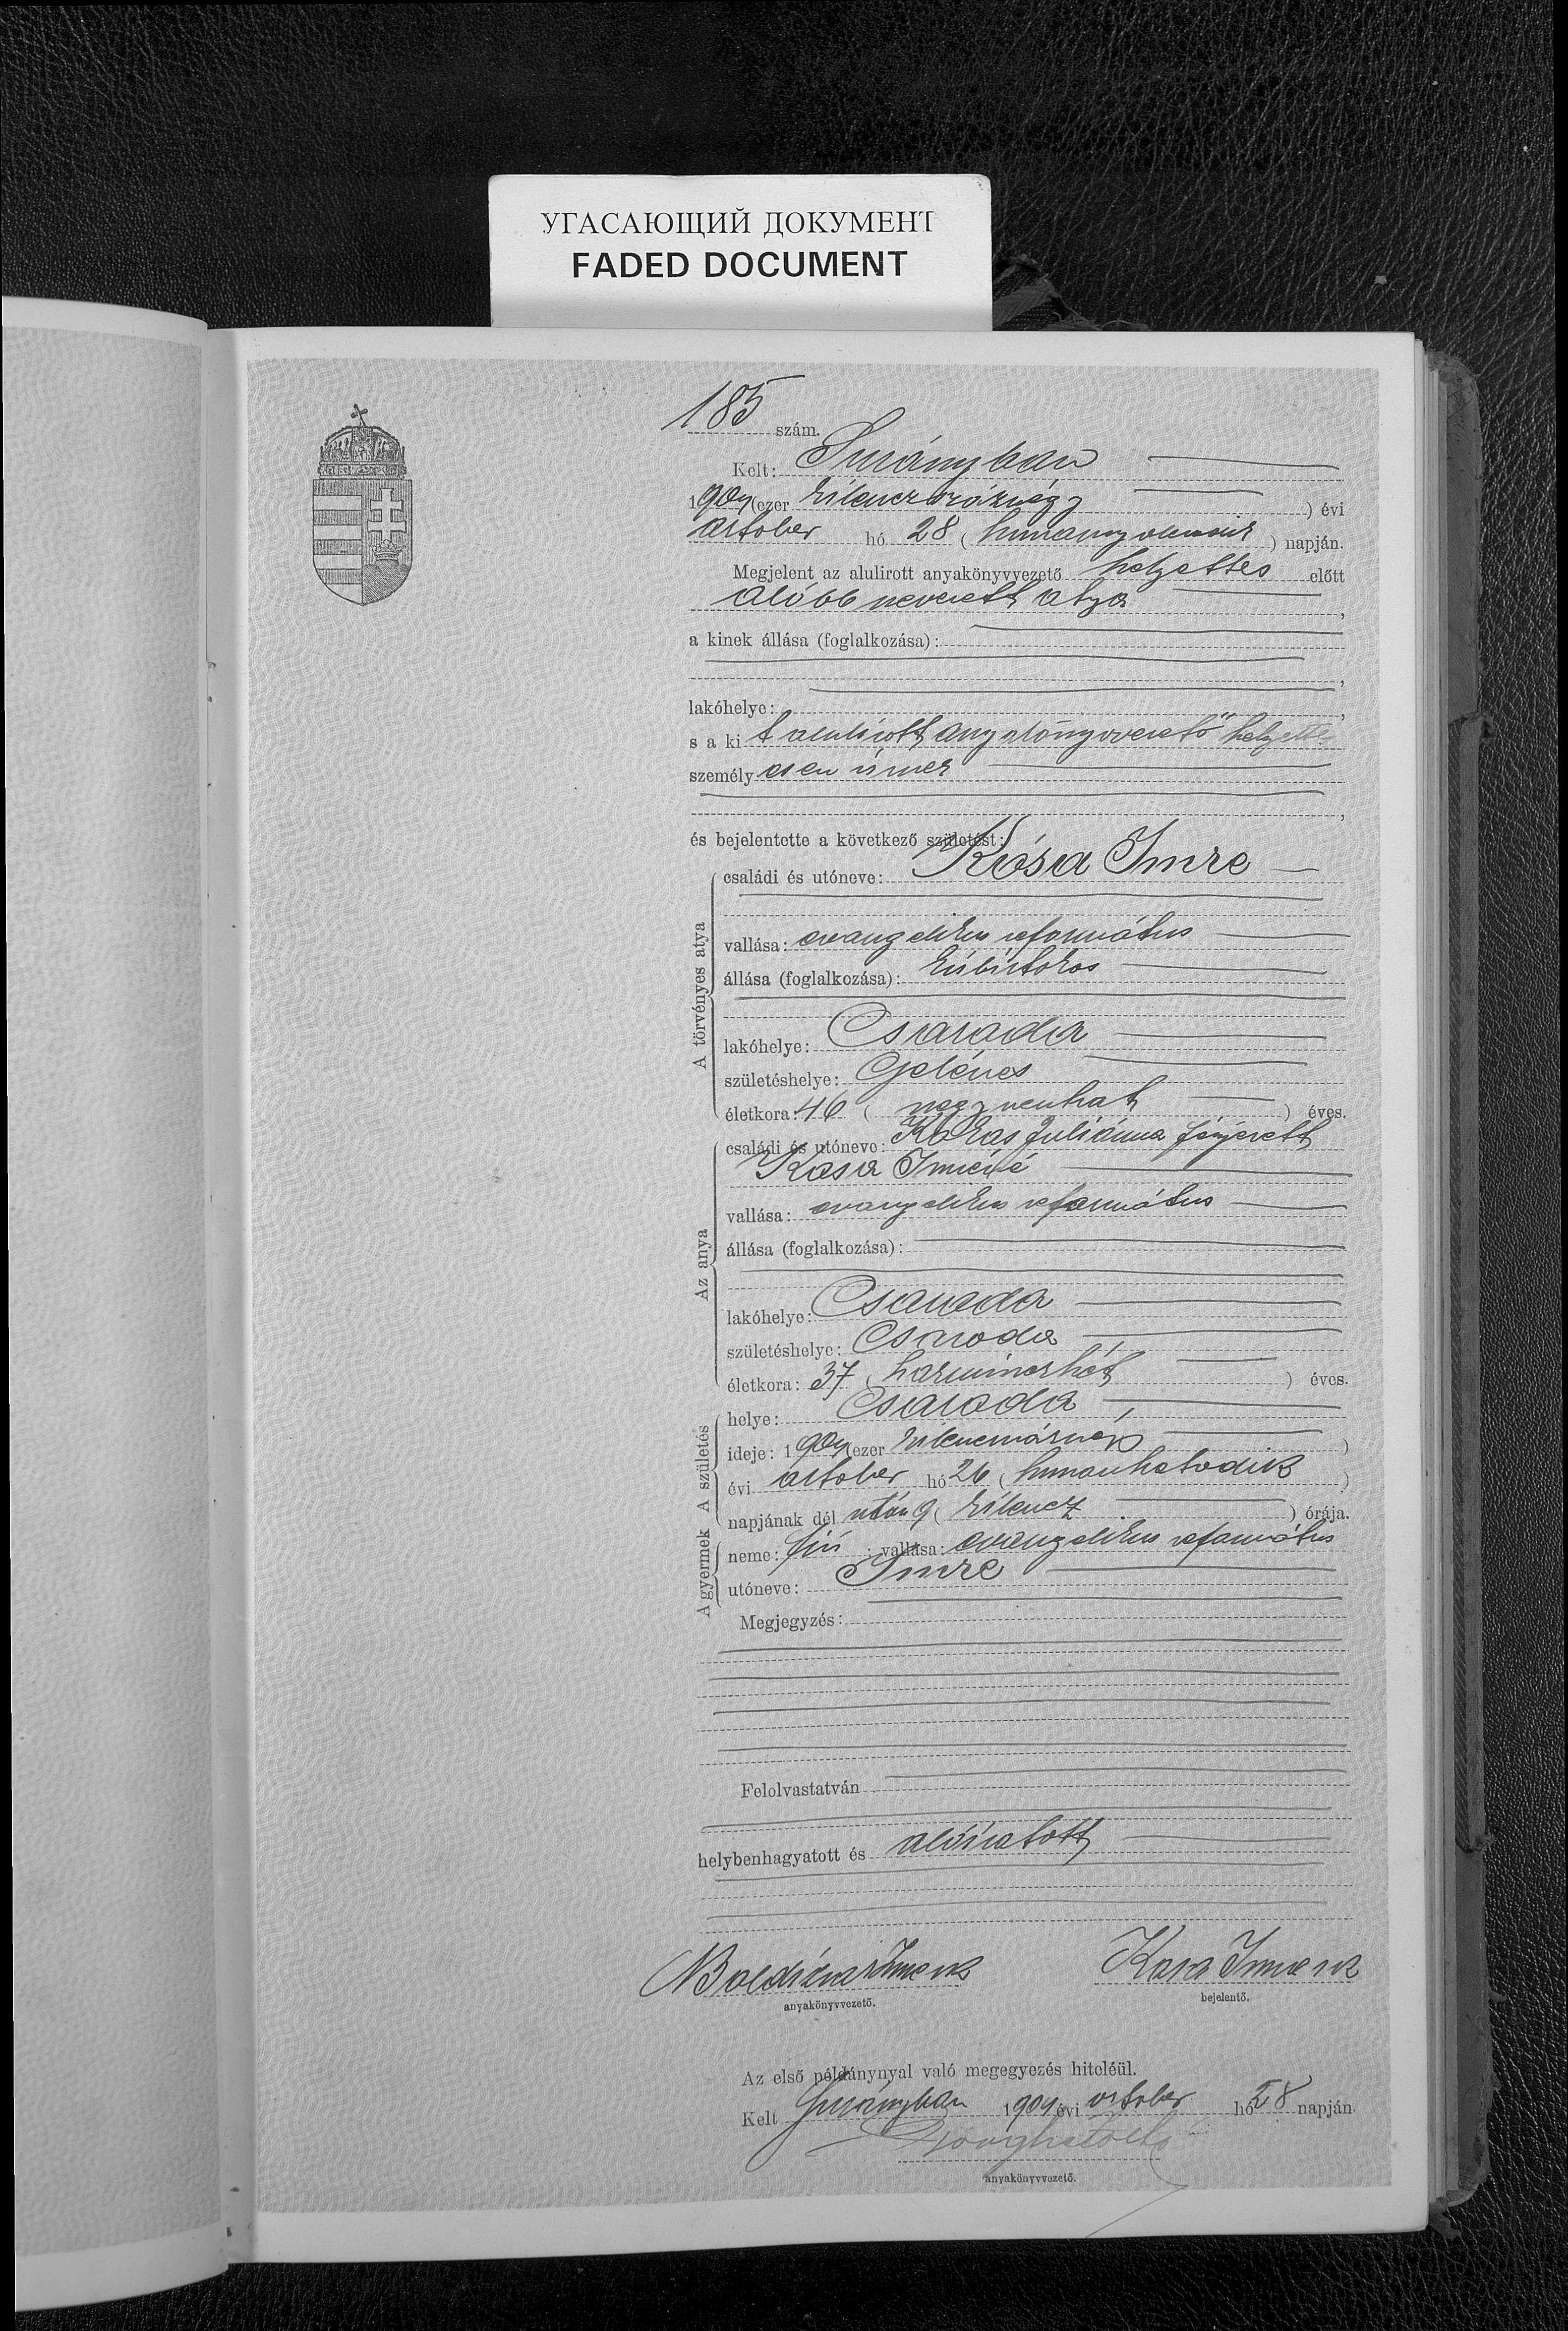 УГАСАЮЩИЙ ДОКУМЕНТ
FADED DOCUMENT
185 szám.
Kelt:
1904 (ezer kilenczszáznégy) évi
október hó 28 (huszonnyolczadik) napján.
Megjelent az alulirott anyakönyvvezető helyettes előtt
alább nevezett atya,
a kinek állása (foglalkozása):
lakóhelye:
s a kit alulírott anyakönyvvezető helyettes
személyesen ismer
és bejelentette a következő születést:
A törvényes atya
családi és utóneve: Kósa Imre
vallása: evangelikus református
állása (foglalkozása): kisbirtokos
lakóhelye: Csaroda
születéshelye: Gelénes
életkora: 46 (negyvenhat) éves.
Az anya
családi és utóneve: Juliánna férjezett
Kósa Imréné
vallása: evangelikus református
állása (foglalkozása):
lakóhelye: Csaroda
születéshelye: Csaroda
életkora: 37 (harminczhét) éves.
A születés
helye: Csaroda
ideje: 1904 (ezer kilenczszáznégy)
évi október hó 26 (huszonhatodik)
napjának dél után 9 (kilencz) órája.
A gyermek
neme: fiú; vallása: evangelikus református
utóneve: Imre
Megjegyzés:
Felolvastatván
helybenhagyatott és aláíratott
Kósa Imre sk
anyakönyvvezető.
bejelentő.
Az első példánynyal való megegyezés hiteléül.
Kelt 1904 évi október hó 28 napján
anyakönyvvezető.